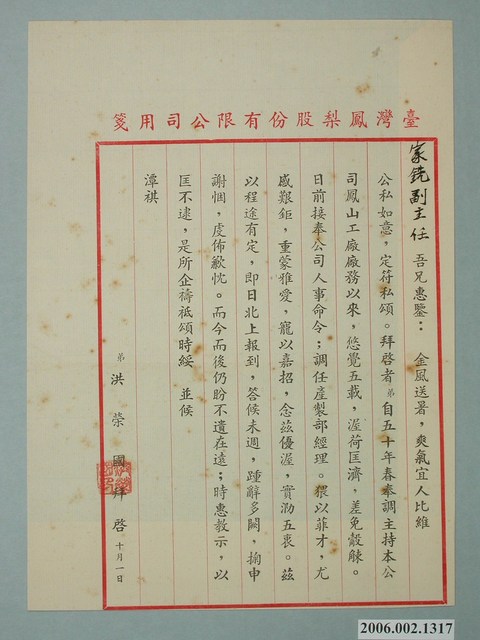 臺灣鳳梨股份有限公司用箋
家銑副主任 吾兄惠鑒：金風送暑，爽氣宜人比維
公私如意，定符私頌。拜啓者弟自五十年春奉調主持本公
司鳳山工廠廠務以來，悠覺五載，渥荷匡濟，差免觳觫。
日前接奉公司人事命令；調任產製部經理。猥以菲才，尤
感艱鉅，重蒙雅愛，寵以嘉招，念茲優渥，實泐五衷。茲
以程途有定，即日北上報到，答候未週，踵辭多闕，掬申
謝悃，虔佈歉忱。而今而後仍盼不遺在遠；時惠教示，以
匡不逮，是所企禱祗頌時綏 並候
潭祺
弟 洪榮國拜啓 十月一日
2006.002.1317